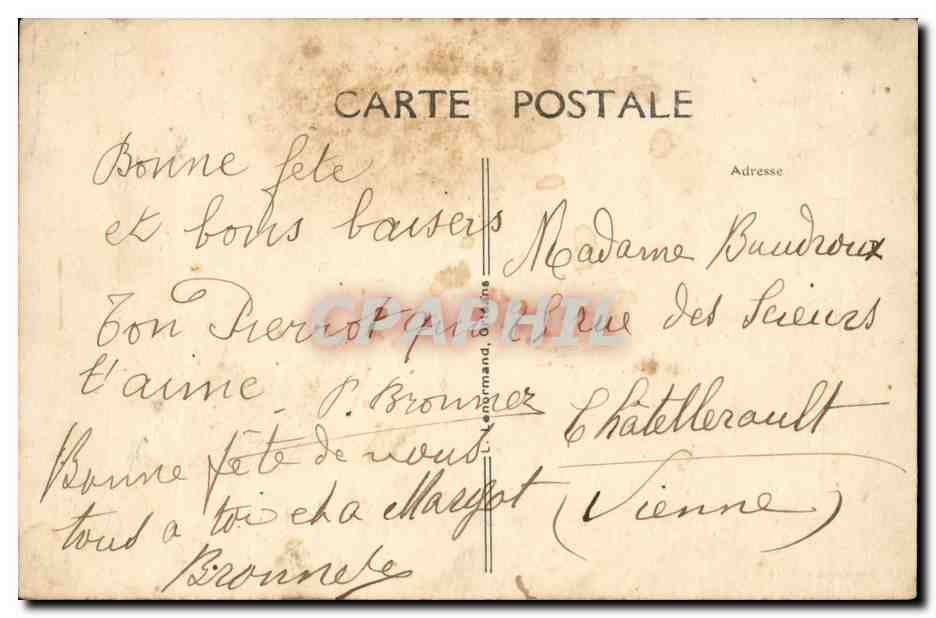 CARTE POSTALE
Bonne fête
et bons baisers
Ton Pierrot qui
t'aime
P. Bronnez
Bonne fête de nous
tous a toi et a Margot
Adresse
Madame Baudroux
rue des Scieurs
Châtellerault
(Vienne)
L. Lenormand, Orléans
CPAPHIL